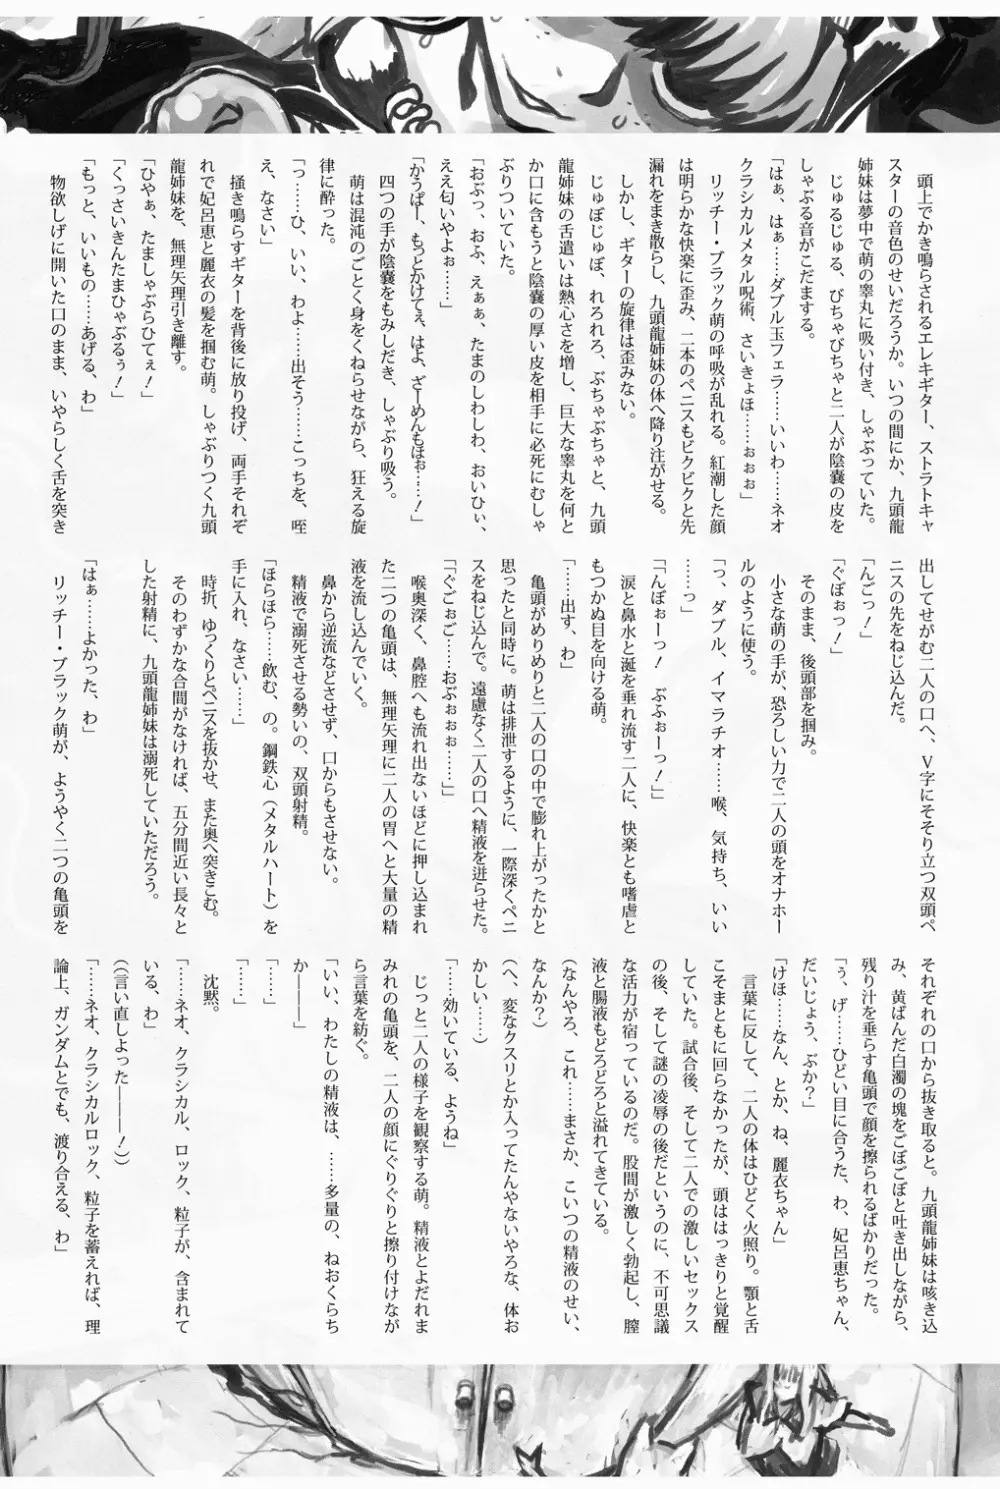 頭上でかき鳴らされるエレキギター、ストラトキャ
スターの音色のせいだろうか。いつの間にか、九頭龍
姉妹は夢中で萌の睾丸に吸い付き、しゃぶっていた。
じゅるじゅる、びちゃびちゃと二人が陰嚢の皮を
しゃぶる音がこだまする。
「はぁ、はぁ……ダブル玉フェラ……いいわ……ネオ
クラシカルメタル呪術、さいきょほ……ぉぉぉ」
リッチー・ブラック萌の呼吸が乱れる。紅潮した顔
は明らかな快楽に歪み、二本のペニスもビクビクと先
漏れをまき散らし、九頭龍姉妹の体へ降り注がせる。
しかし、ギターの旋律は歪みない。
じゅぽじゅぽ、れろれろ、ぶちゃぶちゃと、九頭
龍姉妹の舌遣いは熱心さを増し、巨大な睾丸を何と
か口に含もうと陰嚢の厚い皮を相手に必死にむしゃ
ぶりついていた。
「おぷっ、おふ、えぁぁ、たまのしわしわ、おいひぃ、
ええ匂いやよぉ……」
「かうぱー、もっとかけてぇ、はよ、ざーめんもほぉ……！」
四つの手が陰嚢をもみしだき、しゃぶり吸う。
萌は混沌のごとく身をくねらせながら、狂える旋
律に酔った。
「っ……ひ、いい、わよ……出そう……こっちを、咥
え、なさい」
掻き鳴らすギターを背後に放り投げ、両手それぞ
れで妃呂恵と麗衣の髪を掴む萌。しゃぶりつく九頭
龍姉妹を、無理矢理引き離す。
「ひやぁ、たましゃぶらひてぇ！」
「くっさいきんたまひゃぶるぅ！」
「もっと、いいもの……あげる、わ」
物欲しげに開いた口のまま、いやらしく舌を突き
出してせがむ二人の口へ、V字にそそり立つ双頭ペ
ニスの先をねじ込んだ。
「んごっ！」
「ぐぼぉっ！」
そのまま、後頭部を掴み。
小さな萌の手が、恐ろしい力で二人の頭をオナホー
ルのように使う。
「っ、ダブル、イマラチオ……喉、気持ち、いい
……っ」
「んぼぉーっ！　ぶふぉーっ！」」
涙と鼻水と涎を垂れ流す二人に、快楽とも嗜虐と
もつかぬ目を向ける萌。
「……出す、わ」
亀頭がめりめりと二人の口の中で膨れ上がったかと
思ったと同時に。萌は排泄するように、一際深くペニ
スをねじ込んで。遠慮なく二人の口へ精液を迸らせた。
「「ぐごぉご……おぶぉぉぉ……」」
喉奥深く、鼻腔へも流れ出ないほどに押し込まれ
た二つの亀頭は、無理矢理に二人の胃へと大量の精
液を流し込んでいく。
鼻から逆流などさせず、口からもさせない。
精液で溺死させる勢いの、双頭射精。
「ほらほら……飲む、の。鋼鉄心（メタルハート）を
手に入れ、なさい……」
時折、ゆっくりとペニスを抜かせ、また奥へ突きこむ。
そのわずかな合間がなければ、五分間近い長々と
した射精に、九頭龍姉妹は溺死していただろう。
「はぁ……よかった、わ」
リッチー・ブラック萌が、ようやく二つの亀頭を
それぞれの口から抜き取ると。九頭龍姉妹は咳き込
み、黄ばんだ白濁の塊をごぼごぼと吐き出しながら、
残り汁を垂らす亀頭で顔を擦られるばかりだった。
「ぅ、げ……ひどい目に合うた、わ、妃呂恵ちゃん、
だいじょう、ぶか？」
「けほ……なん、とか、ね、麗衣ちゃん」
言葉に反して、二人の体はひどく火照り。顎と舌
こそまともに回らなかったが、頭ははっきりと覚醒
していた。試合後、そして二人での激しいセックス
の後、そして謎の凌辱の後だというのに、不可思議
な活力が宿っているのだ。股間が激しく勃起し、膣
液と腸液もどろどろと溢れてきている。
（なんやろ、これ……まさか、こいつの精液のせい、
なんか？）
（へ、変なクスリとか入ってたんやないやろな、体お
かしい……）
「……効いている、ようね」
じっと二人の様子を観察する萌。精液とよだれま
みれの亀頭を、二人の顔にぐりぐりと擦り付けなが
ら言葉を紡ぐ。
「いい、わたしの精液は、……多量の、ねおくらち
か――――」
「……」
「……」
沈黙。
「……ネオ、クラシカル、ロック、粒子が、含まれて
いる、わ」
（（言い直しよった――――！））
「……ネオ、クラシカルロック、粒子を蓄えれば、理
論上、ガンダムとでも、渡り合える、わ」